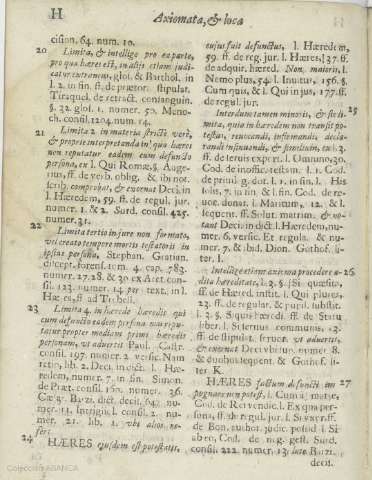 H
Axiomata, & loca
cision. 64. num. 10.
20
Limita, & intellige pro ea parte,
pro qua hæres est, in aliis etiam iudi-
catur extraneus, glos. & Barthol. in
l. 2. in fin. ff. de prætor. stipulat.
Tiraquel. de retract. consanguin.
§. 32. glos. 1. numer. 50. Meno-
ch. consil. 1204. num. 14.
21
Limita 2. in materia stricti verè,
& proprie interpretanda in qua hæres
non reputatur eadem cum defuncto
persona, ex l. Qui Romæ §. Auge-
rius, ff. de verb. oblig. & ibi not.
scrib. comprobat, & exornat Deci. in
l. Hæredem, 59. ff. de regul. jur.
numer. 1. & 2. Surd. consil. 425.
numer. 31.
22
Limita tertio in jure non formato,
vel creato tempore mortis testatoris in
ipsius persona, Stephan. Gratian.
discept. forens. tom. 4. cap. 783.
numer. 27. 28. & 30. ex Aret. con-
sil. 123. numer. 14. per text. in l.
Hæres, ff. ad Trebell.
23
Limita 4. in hærede hæredis qui
cum defuncto eadem persona non repu-
tatur propter mediam primi hæredis
personam, vt advertit Paul. Castr.
consil. 197. numer. 2. versic. Nam
retio, lib. 2. Deci. in dict. l. Hæ-
redem, numer. 7. in fin. Simon.
de Præt. consil. 150. numer. 36.
numer. 13. Intrigli, consil. 2. nu-
mer. 21. lib. 1. vbi alios re-
fert.
24
HÆRES ejusdem est potestatis,
cujus fuit defunctus, l. Hæredem,
59. ff. de reg. jur. l. Hæres, 37. ff.
de adquir. hæred. Non majoris, l.
Nemo plus, 54. l. Inuitus, 156. §.
Cum quis, & l. Qui in jus, 177. ff.
de regul. jur.
25
Interdum tamen minoris, & sic li-
mita, quia in hæredem non transit po-
testas, reuocandi, infirmandi, decla-
randi insinuandi, & similium, text.
ff. de seruis export. l. Omnino, 30.
Cod. de inoffic. testam. l. 1. Cod.
de priuileg. dot. l. 1. in fin. l. His
solis, 7. in fin. & l. fin. Cod. de re-
uoc. donat. l. Maritum, 12. & l.
sequent. ff. Solut. matrim. & no-
tant Deci. in dict. l. Hæredem, nu-
mer. 6. versic. Et regula, & nu-
mer. 7. & ibid. Dion. Gothof. lit-
ter. I.
26
Intellige etiam axioma procedere de-
dita hæreditate, l. 2. §. Si quæsito,
ff. de Hæred. instit. l. Qui plures,
23. ff. de vulgar. & pupil. substit.
l. 3. §. Eiques hæredi, ff. de Statu
liber. l. Si seruus communis, 13.
ff. de stipulat. seruor. vt advertit,
& exornat Deci. vbi sup. numer. 8.
& duobus sequent. & Gothof. lit-
ter. K.
27
HÆRES factum defuncti im-
pugnare non potest, l. Cum à matre,
Cod. de Rei vendic. l. Ex qua per-
sona, ff. de regul. jur. l. Si vxor, ff.
consil. 222. numer. 13. late Barzi.
decis.
Colección ABANCA